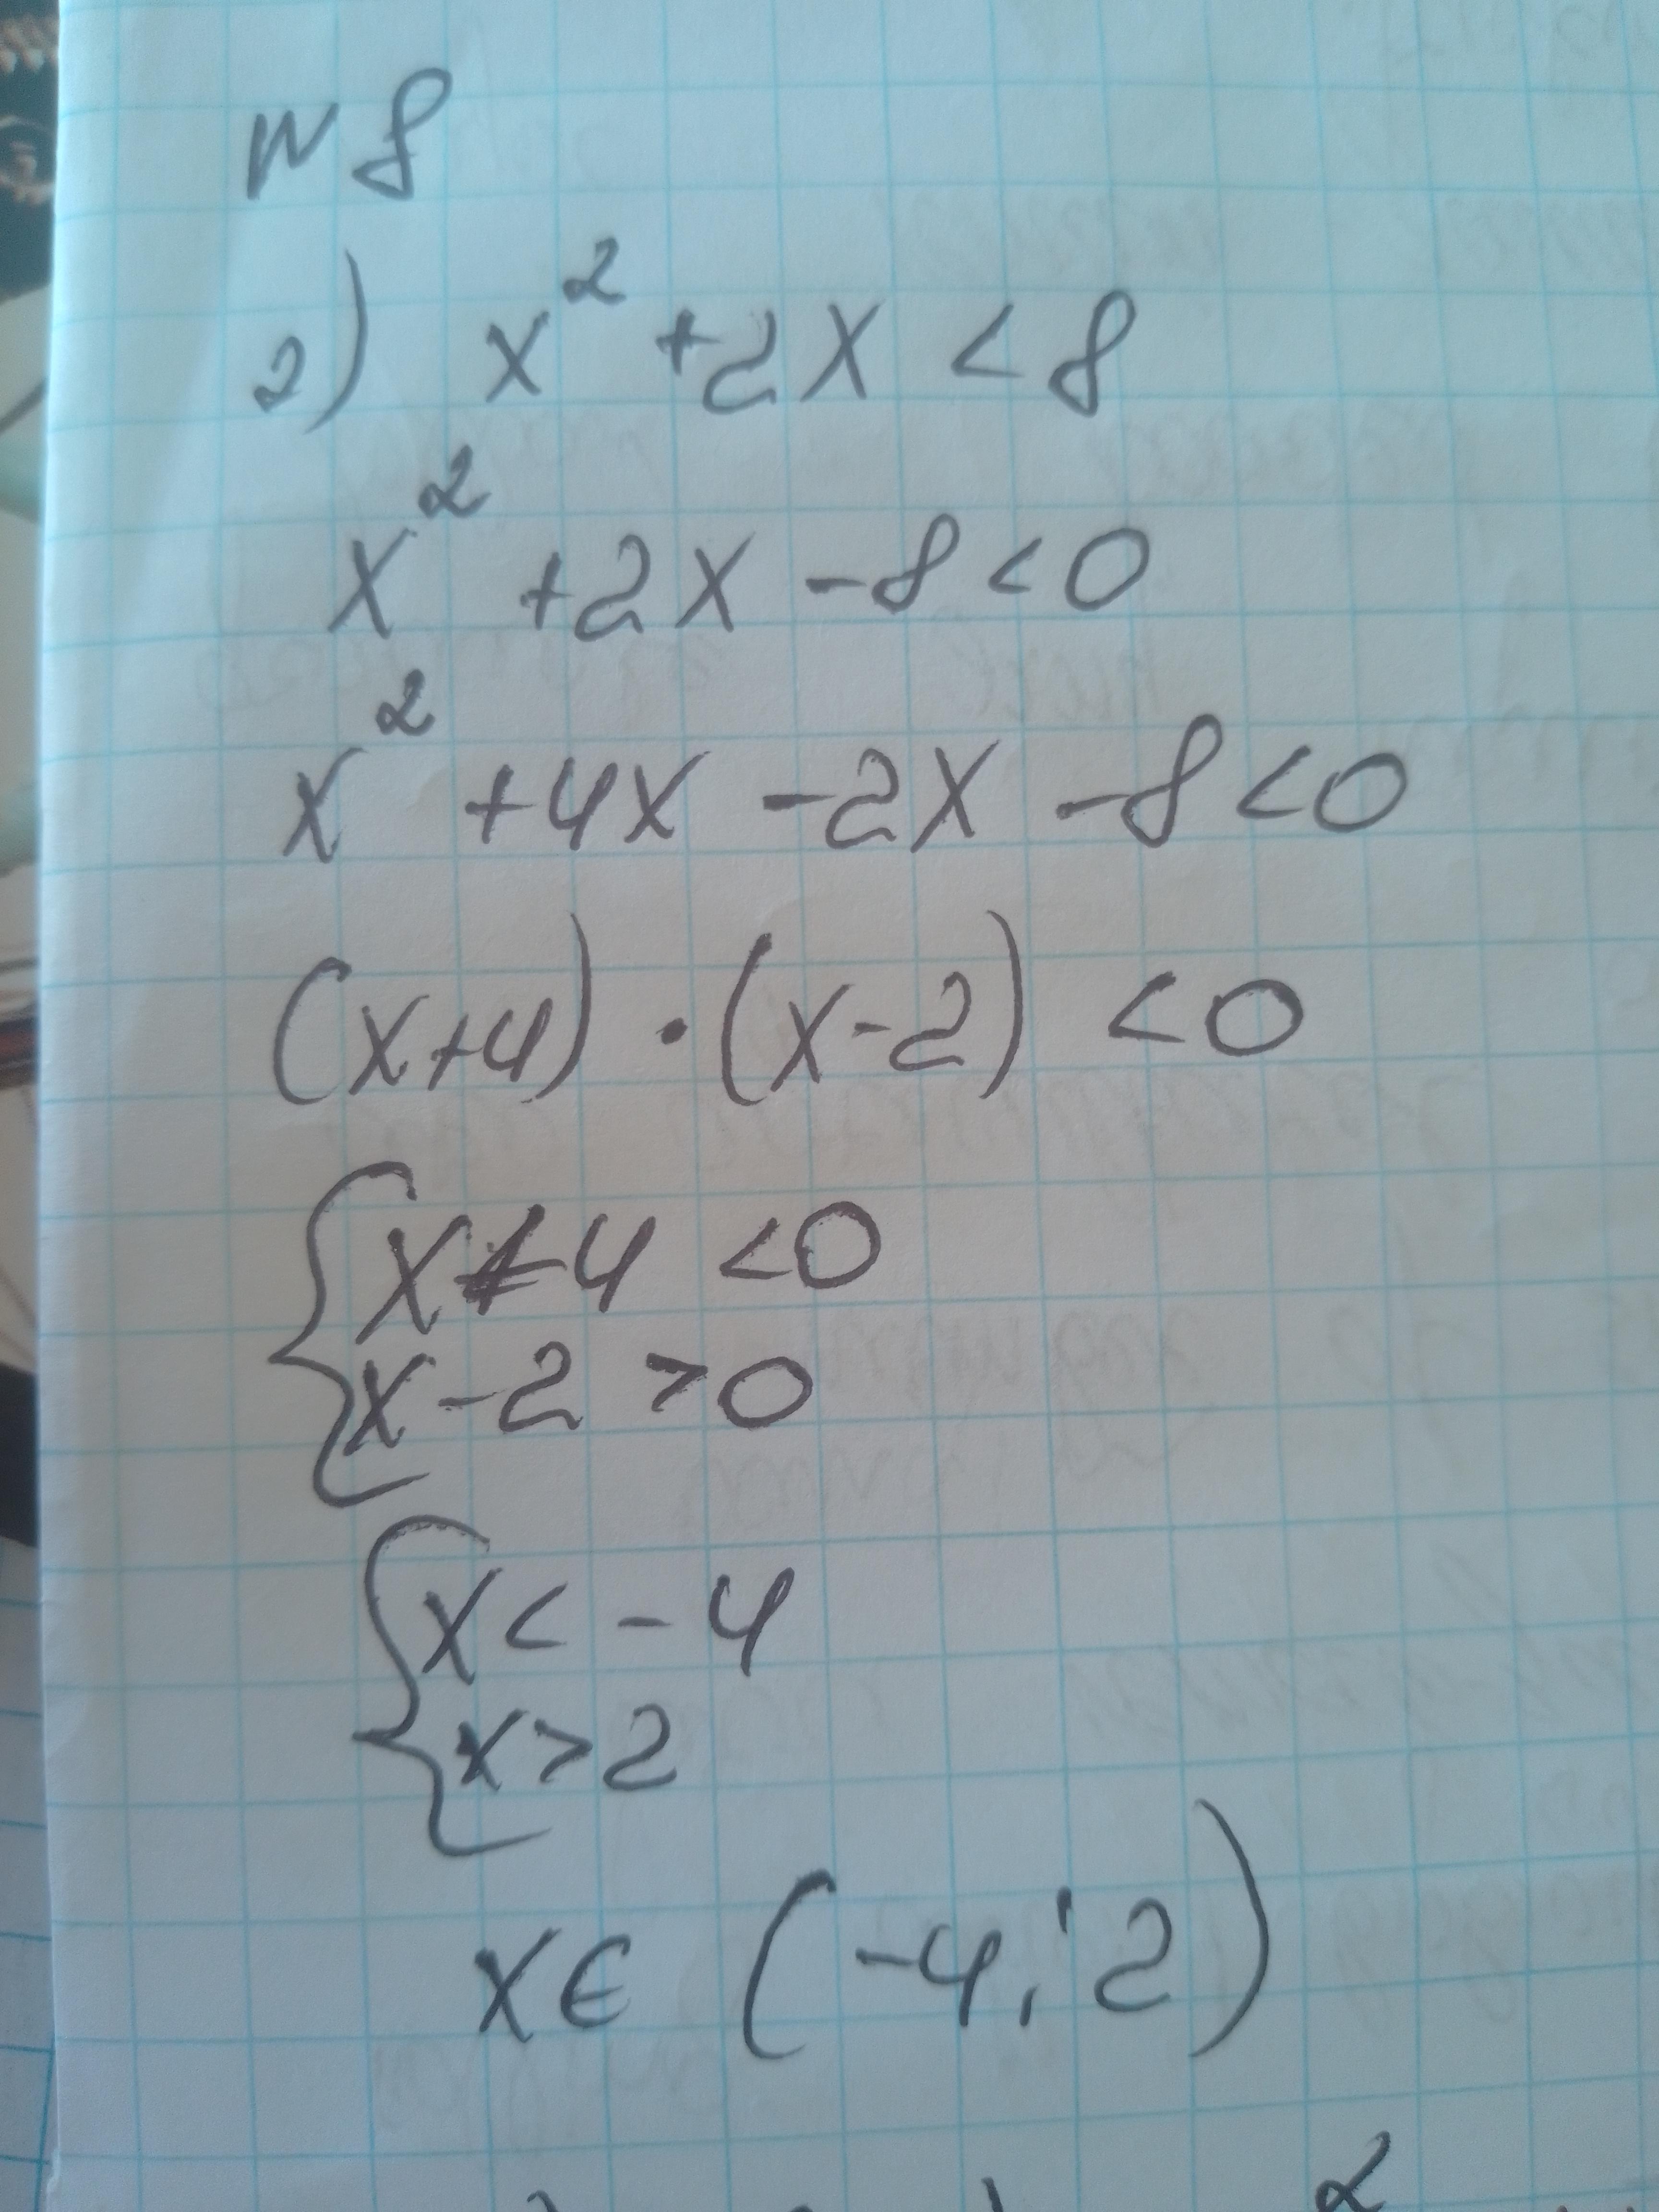 N 8
2) x² + 2x < 8
x² + 2x - 8 < 0
x² + 4x - 2x - 8 < 0
(x+4) · (x-2) < 0
{ x+4 < 0
x - 2 > 0
{ x < - 4
x > 2
x ∈ (-4; 2)
2